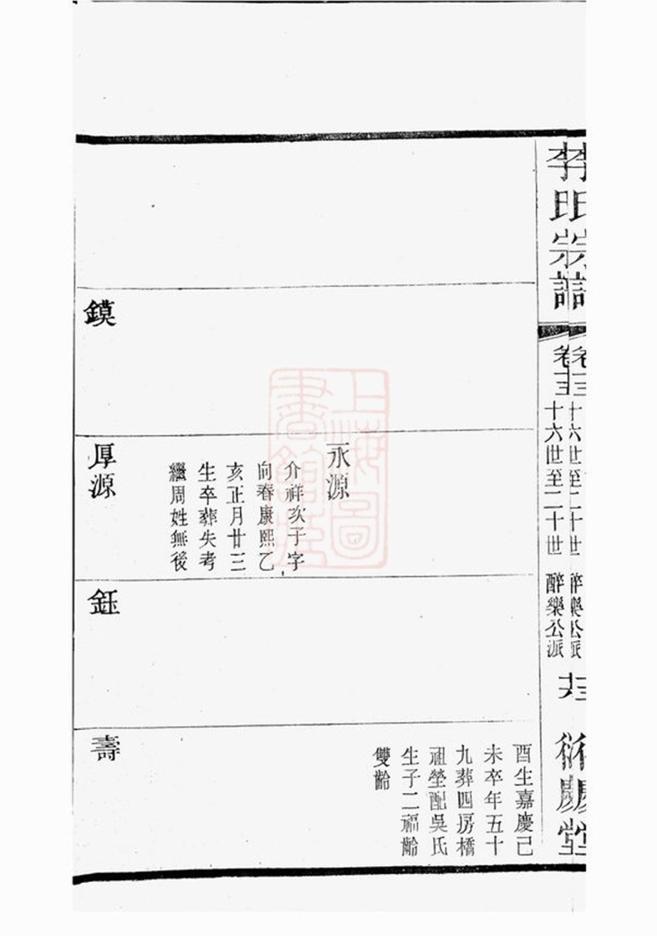 李氏宗譜
十六世至二十世
醉樂公派
衍慶堂
鏌
永源
介祥次子字
向春康熙乙
亥正月廿三
生卒葬失考
繼周姓無後
厚源
鈺
酉生嘉慶己
未卒年五十
九葬四房橋
祖塋配吳氏
生子二福齡
雙齡
壽
上海圖
書館藏